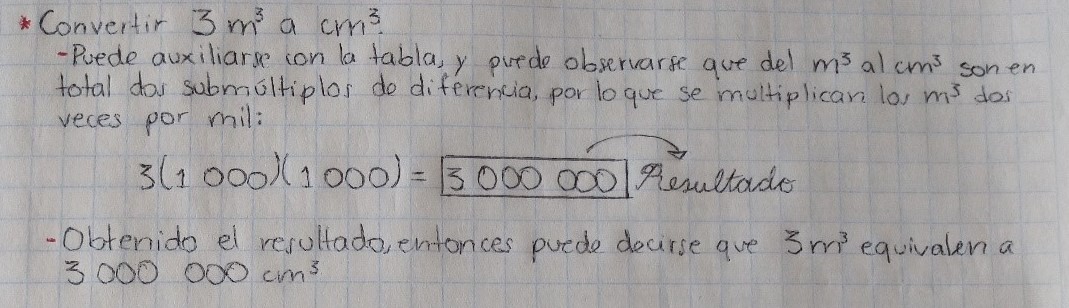 * Convertir 3 m³ a cm³.
- Puede auxiliarse con la tabla, y puede observarse que del m³ al cm³ son en
total dos submúltiplos de diferencia, por lo que se multiplican los m³ dos
veces por mil:
3(1 000)(1 000) = 3 000 000 Resultado
- Obtenido el resultado, entonces puede decirse que 3 m³ equivalen a
3 000 000 cm³